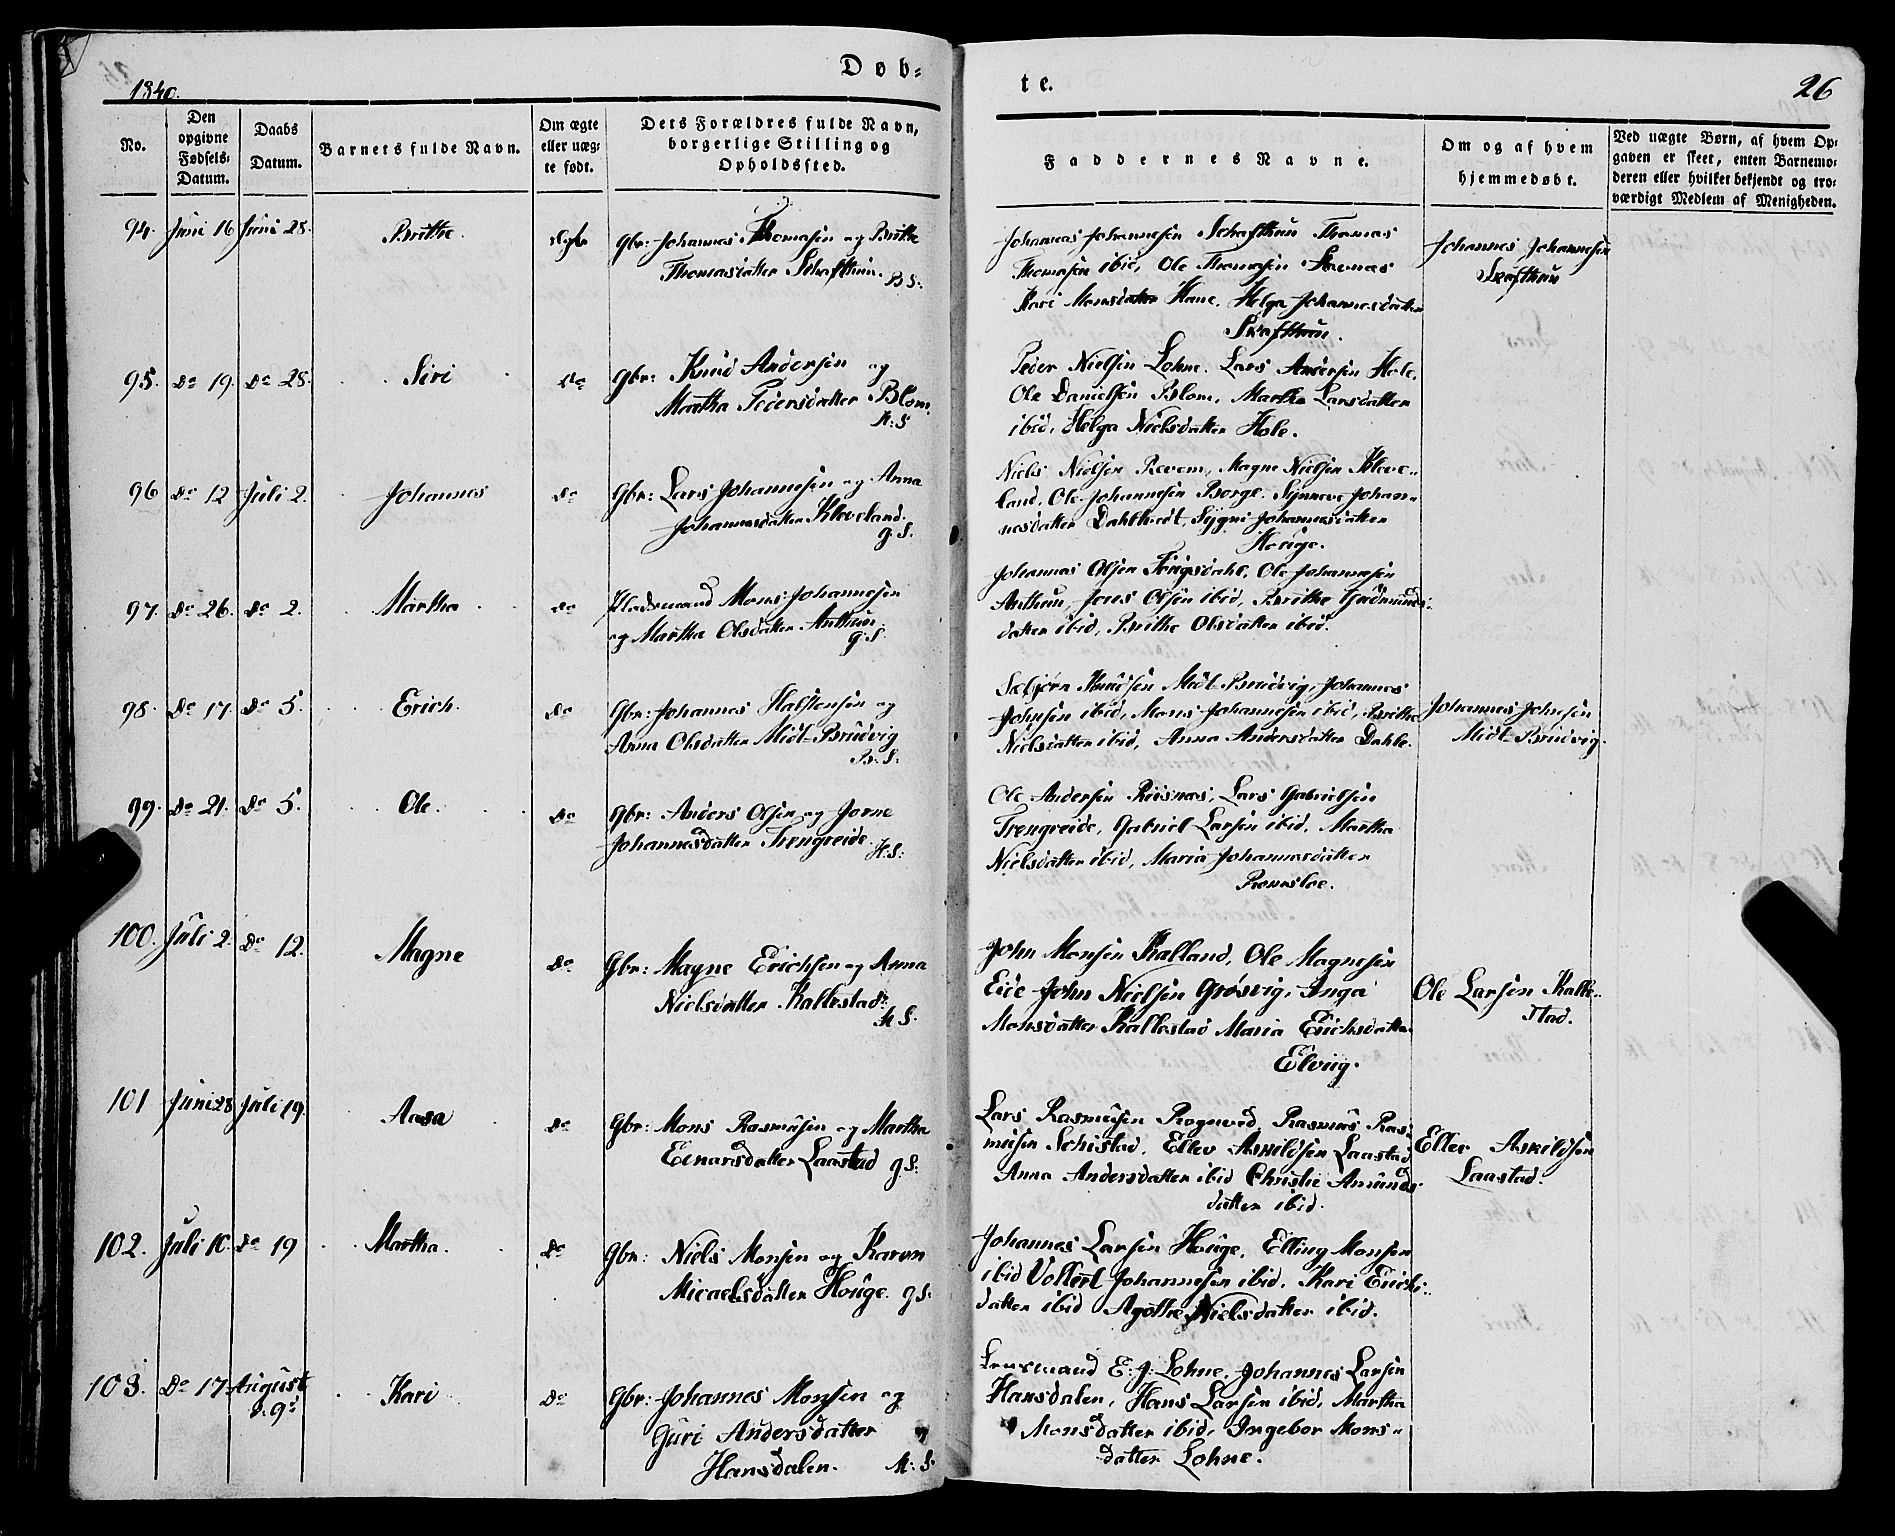 1840.
Døb=
te.
26
No.
Den opgivne Fødsels= Datum.
Daabs Datum.
Barnets fulde Navn.
Om ægte eller uæg= te født.
Dets Forældres fulde Navn, borgerlige Stilling og Opholdssted.
Faddernes Navne.
Om og af hvem hjemmedøbt.
Ved uægte Børn, af hvem Op= gaven er skeet, enten Barnemo= deren eller hvilket bekjendt og tro= værdigt Medlem af Menigheden.
94. Juni 16 Juni 28. Brithe
Gbr: Johannes Thomasen og Brithe
Thomasdatter Schafthun. B S:
Johannes Johannesen Schafthun Thomas
Thomasen ibid, Ole Thomasen
Kari Monsdatter Hane, Helga Johannesdatter
Skafthun.
Johannes Johannesen
Skafthun
95. Do 19. Do 28. Siri Do
Gbr: Knud Andersen og
Martha Pedersdatter Blom.
K: S
Peder Nielsen Lohne. Lars Andersen Hole.
Ole Danielsen Blom, Marthe Larsdatter
ibid, Helga Nielsdatter Hole.
96 Do 12 Juli 2. Johannes Do
Gbr: Lars Johannesen og Anna
Johannesdatter Kleveland.
g. S.
Niels Nielsen Revem, Magne Nielsen Kleve=
land, Ole Johannesen Borge. Synneve Johan=
nesdatter Dahltvedt, Sygni Johannesdatter
Houge.
97. Do 26. Do 2. Martha Do
Pladsmand Mons Johannesen
og Martha Olsdatter Anthun
g. S.
Johannes Olsen Trugsdahl, Ole Johannesen
Anthun, Jens Olsen ibid, Brithe Gudmunds=
datter ibid, Brithe Olsdatter ibid.
98. Do 17. Do 5. Erich. Do
Gbr: Johannes Halstensen og
Anna Olsdatter Midt-Brudvig
B: S:
Sæbjørn Knudsen Midt-Brudvig, Johannes
Johnsen ibid, Mons Johannesen ibid, Brithe
Nielsdatter ibid, Anna Andersdatter Dahle.
Johannes Johnsen
Midt-Brudvig.
99. Do 21. Do 5. Ole. Do
Gbr: Anders Olsen og Jorne
Johannesdatter Trengreide. H. S:
Ole Andersen Risnæs, Lars Gabrielsen
Trengreide, Gabriel Larsen ibid. Martha
Nielsdatter ibid, Maria Johannesdatter
Romsloe.
100. Juli 2. Do 12. Magne Do
Gbr: Magne Erichsen og Anna
Nielsdatter Kallestad.
H S.
John Monsen Kalland, Ole Magnesen
Eide John Nielsen Grøsvig, Inga
Monsdatter Kallestad Maria Erichsdatter
Elviig.
Ole Larsen Kalle=
stad.
101 Juni 28 Juli 19. Aasa Do
Gbr: Mons Rasmusen og Martha
Einarsdatter Laastad g. S.
Lars Rasmusen Rogned, Rasmus Ras=
musen Schistad. Ellev Askildsen Laastad
Anna Andersdatter ibid Christie Amunds=
datter ibid.
Ellev Askildsen
Laastad.
102. Juli 10. Do 19 Martha. Do
Gbr: Niels Monsen og Karen
Micaelsdatter Houge. g S.
Johannes Larsen Houge, Elling Monsen
ibid Vollert Johannesen ibid. Kari Erichs=
datter ibid Agothe Nielsdatter ibid.
103. Do 17. August d. 9de Kari Do
Gbr: Johannes Monsen og
Guri Andersdatter
Hansdalen. H: S.
Lensmand E: J: Lohne, Johannes Larsen
Hansdalen, Hans Larsen ibid, Martha
Monsdatter ibid, Ingebor Mons=
datter Lohne.